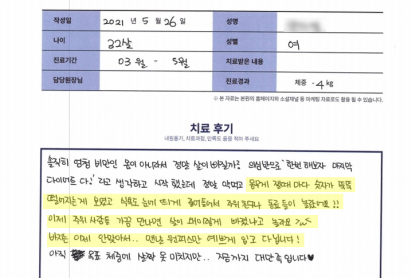 작성일 2021 년 5 월 26 일 성명
나이 22살 성별 여
진료기간 03 월 - 5월 치료받은 내용
담당원장님 진료경과 체중 -4kg
※ 본 자료는 본원의 홈페이지와 소셜채널 등 마케팅 자료로도 활용 될 수 있습니다.
치료 후기
내원동기, 치료과정, 만족도 등을 적어 주세요
솔직히 엄청 비만인 몸이 아니여서 정말 살이 빠질까? 의심반으로 "한번 해보자 마지막
다이어트 다!" 라고 생각하고 시작 했는데 정말 약먹고 몸무게 잴때 마다 숫자가 뚝뚝
떨어지는게 보였고 식욕도 눈에 띄게 줄어들어서 주위 친구나 동료들이 놀랬거든요!!
이제 주위 사람들 가끔 만나면 살이 왜이렇게 빠졌냐고 놀라요
바지는 이제 안맞아서.. 맨날 원피스만 예쁘게 입고 다닙니다!
아직 목표 체중에 살짝 못 미치지만.. 지금까지 대만족 입니다♥